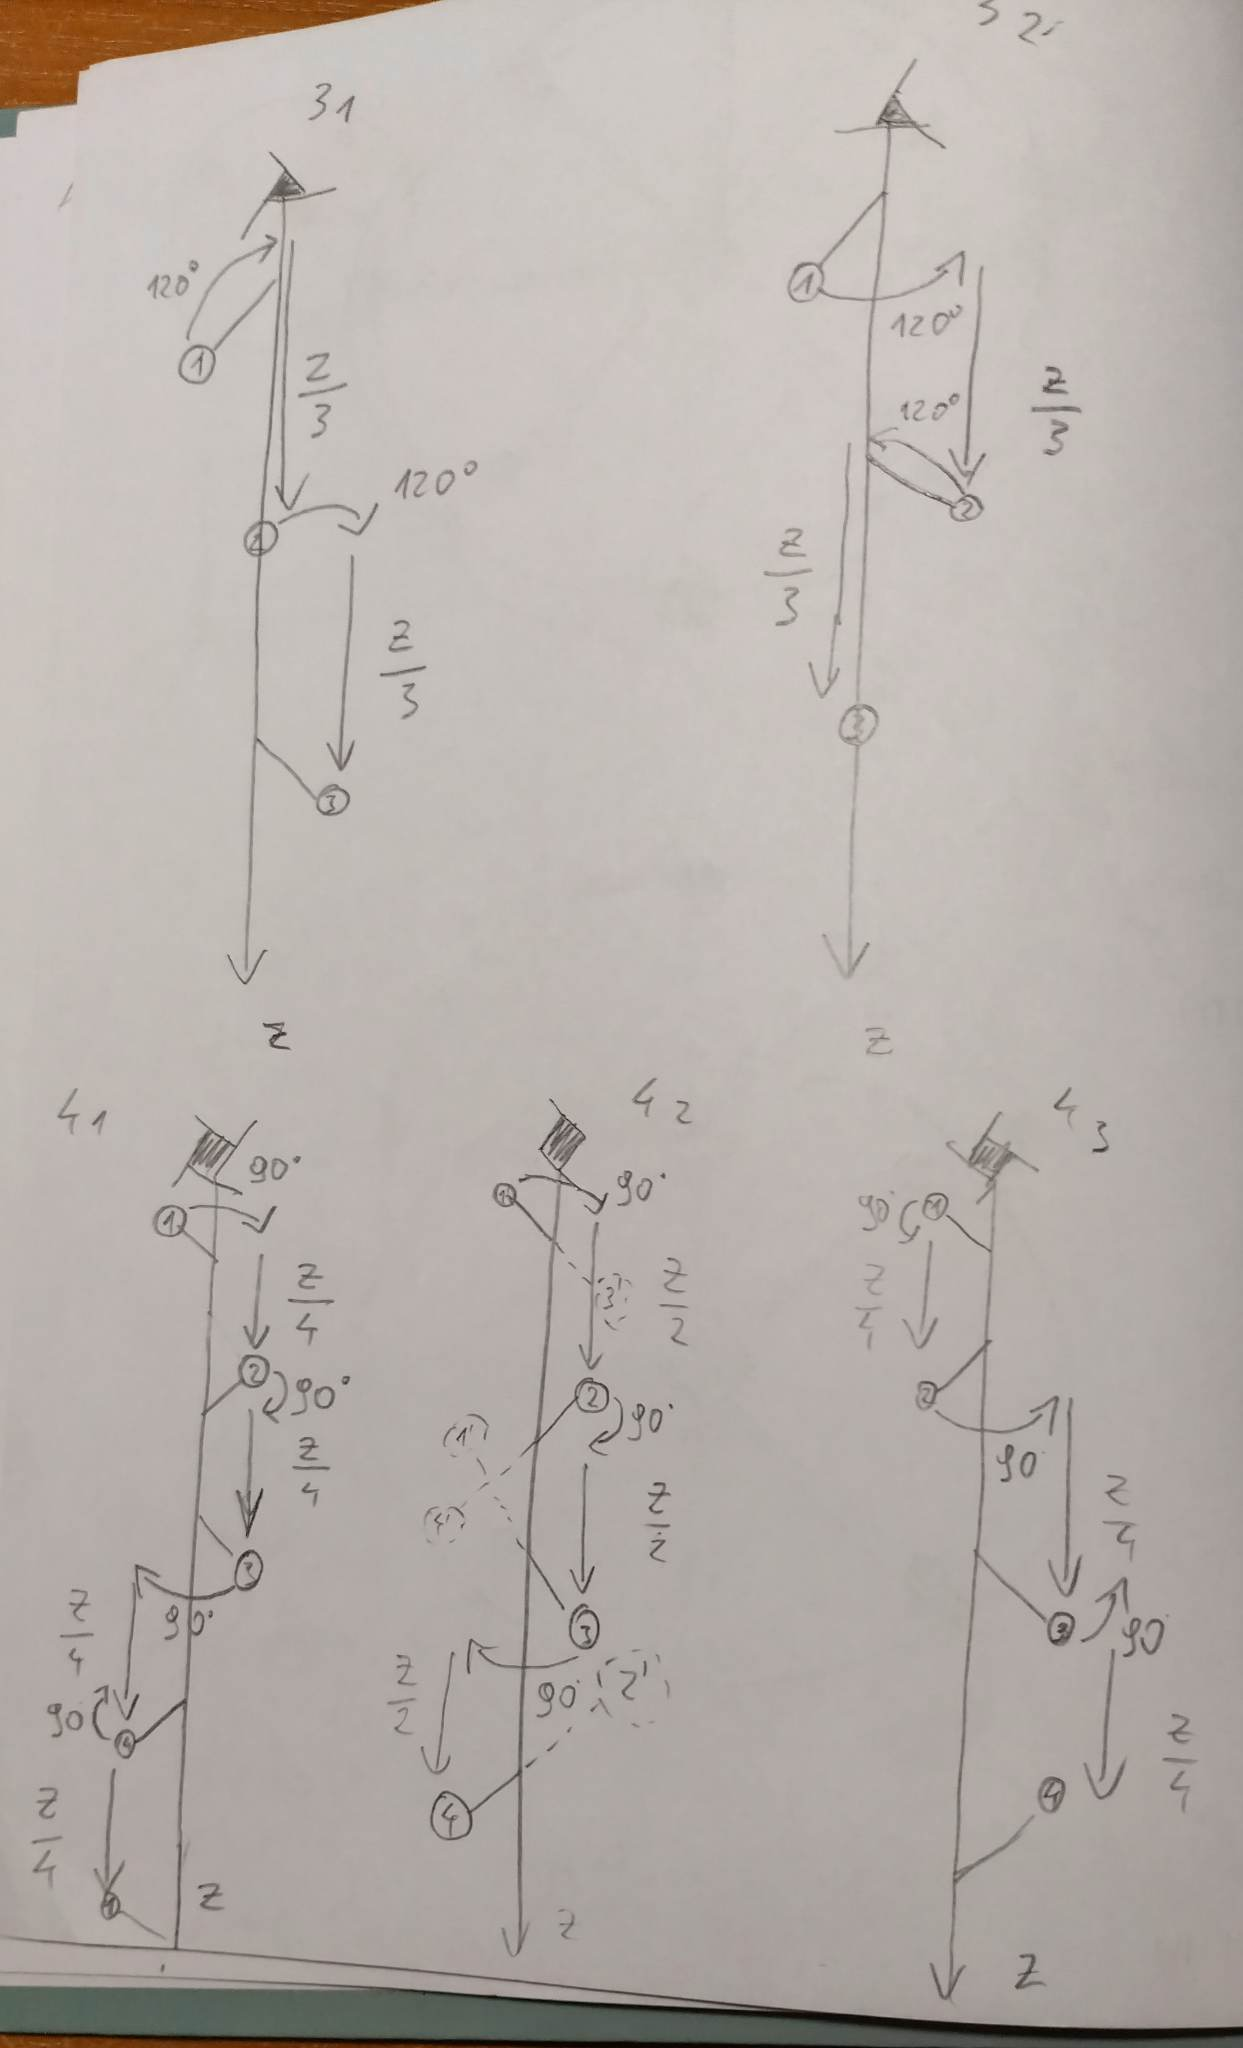 3₁
120°
1
z/3
2
120°
z/3
3
z
3₂
1
120°
z/3
120°
2
z/3
3
z
4₁
90°
1
z/4
2
90°
z/4
3
90°
z/4
90
4
z/4
1
z
4₂
1
90°
3'
z/2
2
90°
1'
4'
z/2
3
90
2'
z/2
4
z
4₃
90
1
z/4
2
90
z/4
3
90
z/4
4
z